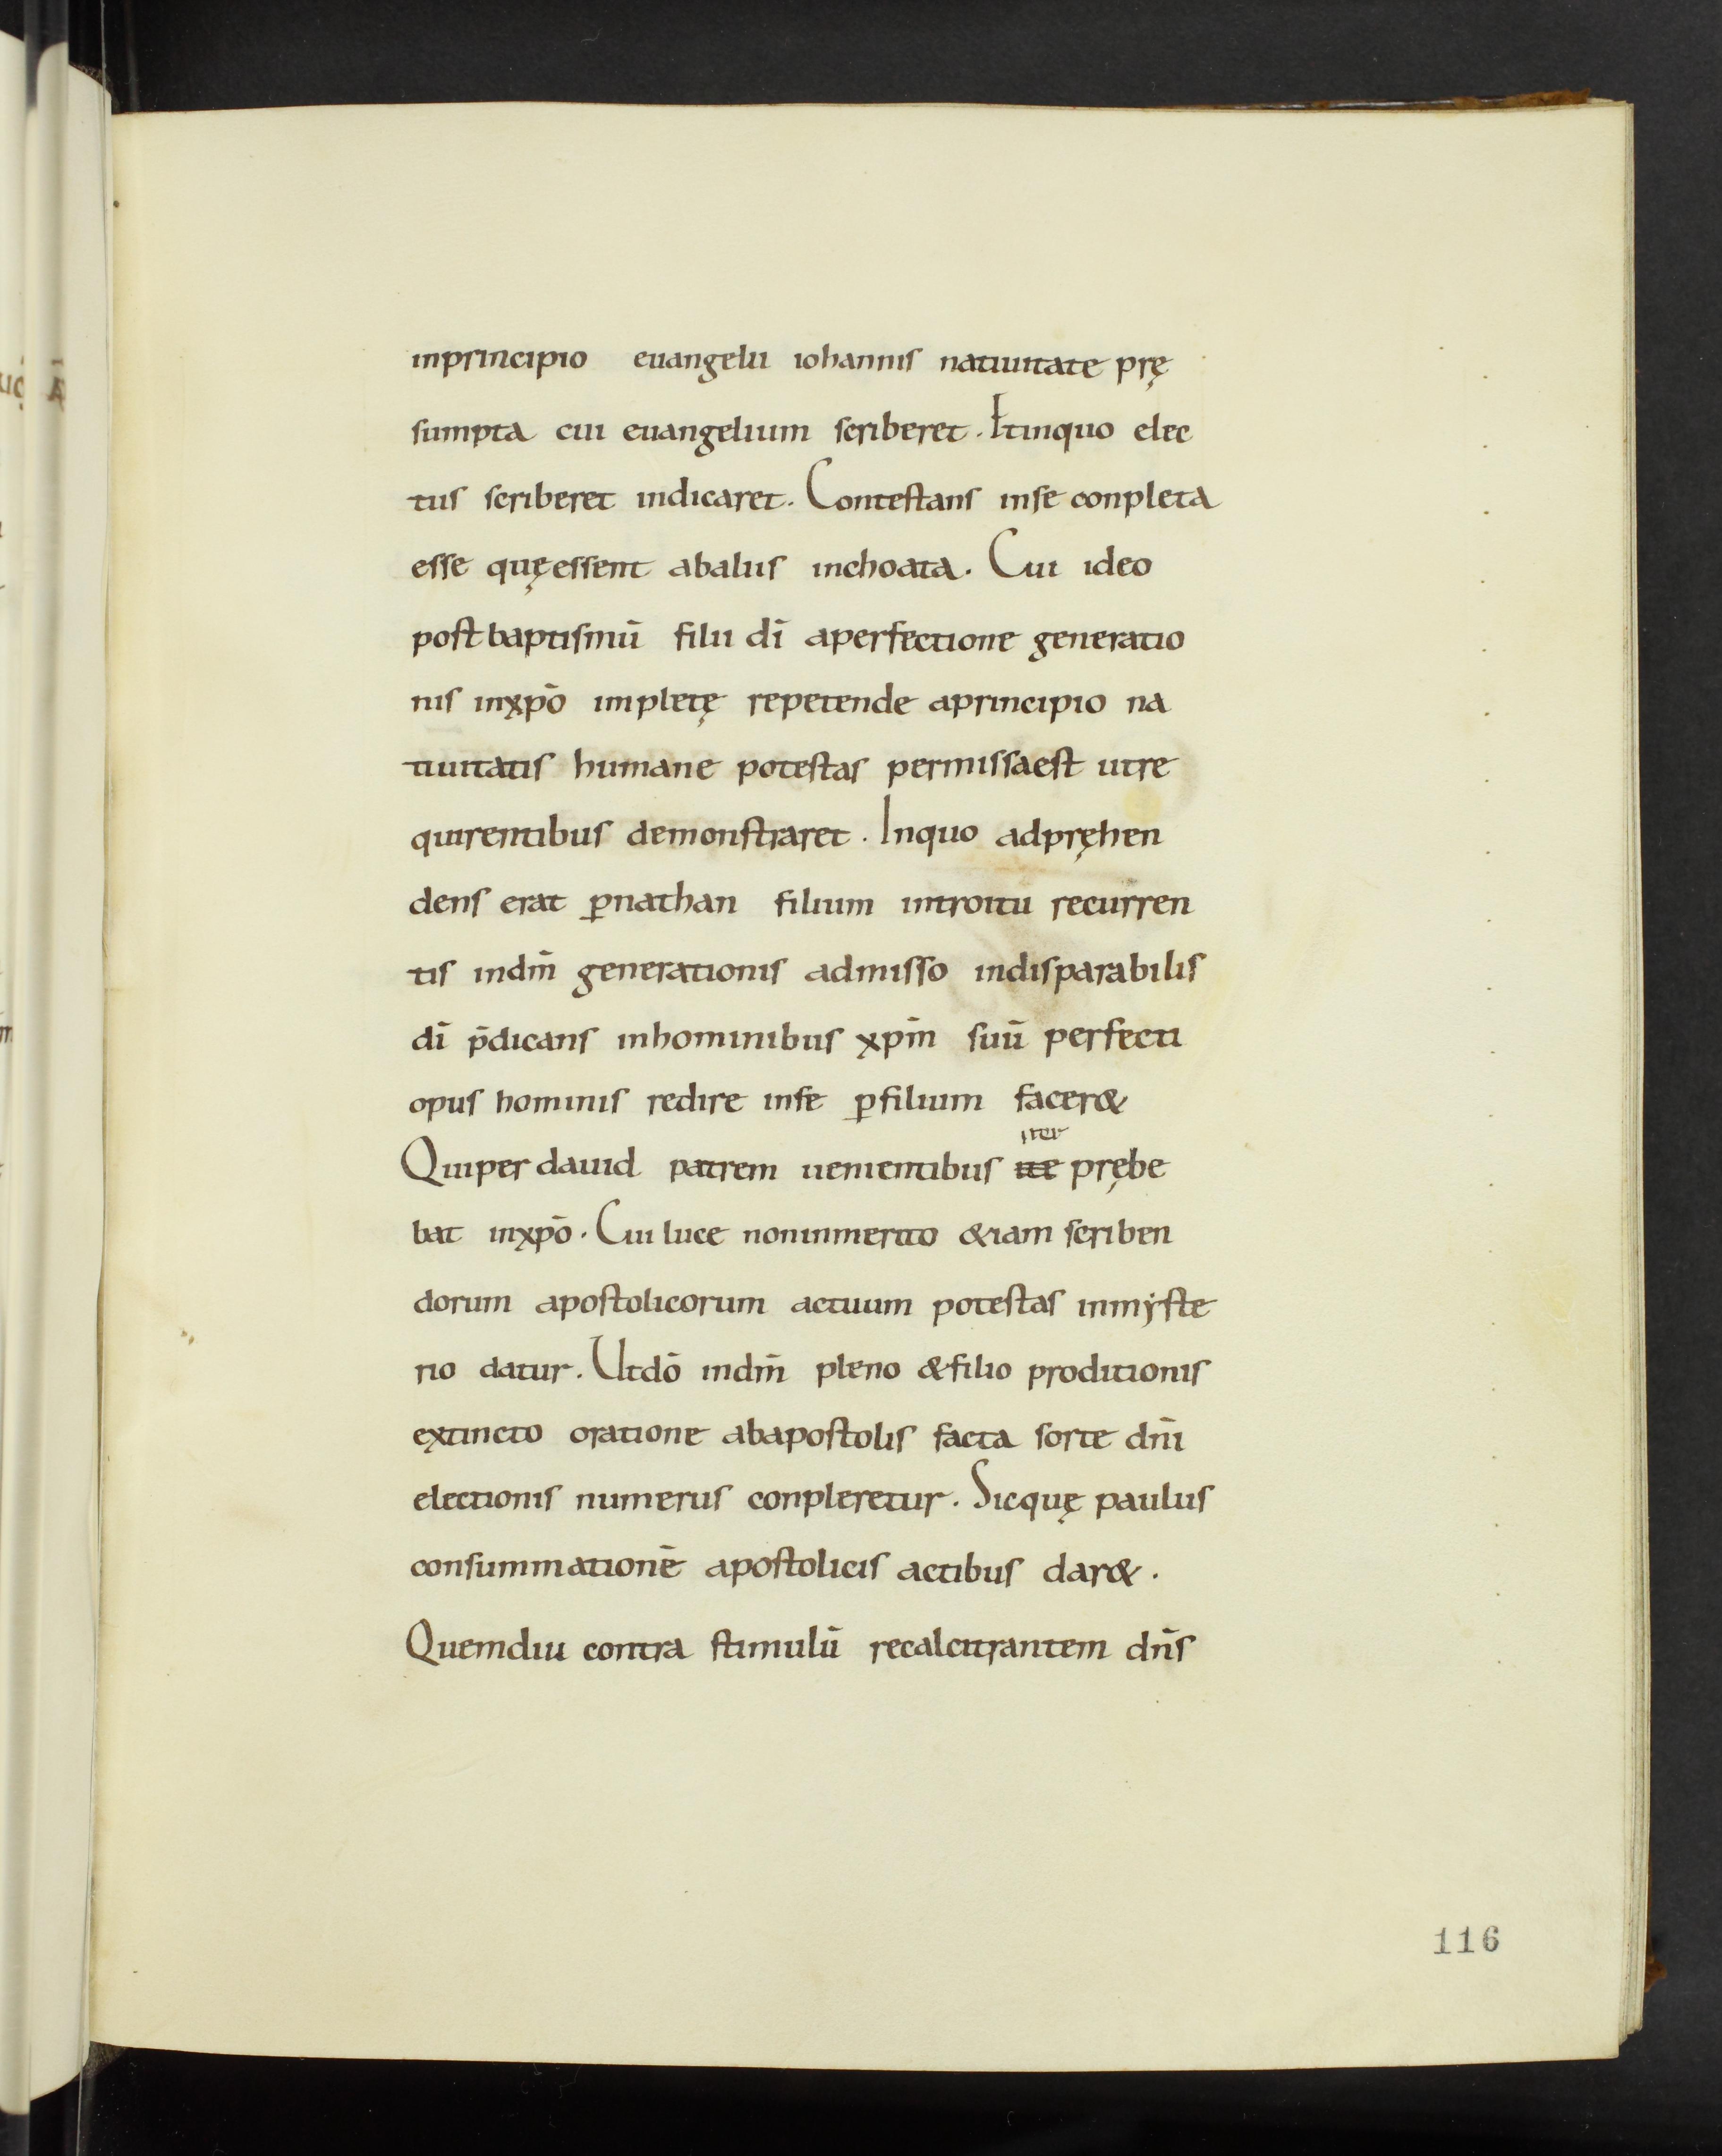 inprincipio euangelii iohannis natiuitate prę
sumpta cui euangelium scriberet. Etinquo elec
tus scriberet indicaret. Contestans inse conpleta
esse quęessent abaliis inchoata. Cui ideo
postbaptismū filii dī aperfectione generatio
nis inxpō impletę repetende aprincipio na
tiuitatis humane potestas permissaest utre
quirentibus demonstraret. Inquo adpręhen
dens erat ꝑnathan filium introitu recurren
tis indm̄ generationis admisso indisparabilis
dī p̄dicans inhominibus xpm̄ suū perfecti
opus hominis redire inse ꝑfilium facer&
iter
Quiper dauid patrem uenientibus ite prębe
bat inxpō. Cui luce noninmerito &iam scriben
dorum apostolicorum actuum potestas inmẏste
rio datur. Utdō indm̄ pleno &filio proditionis
extincto oratione abapostolis facta sorte dn̄i
electionis numerus conpleretur. Sicquę paulus
consummationē apostolicis actibus dar&.
Quemdiu contra stimulū recalcitrantem dn̄s
116